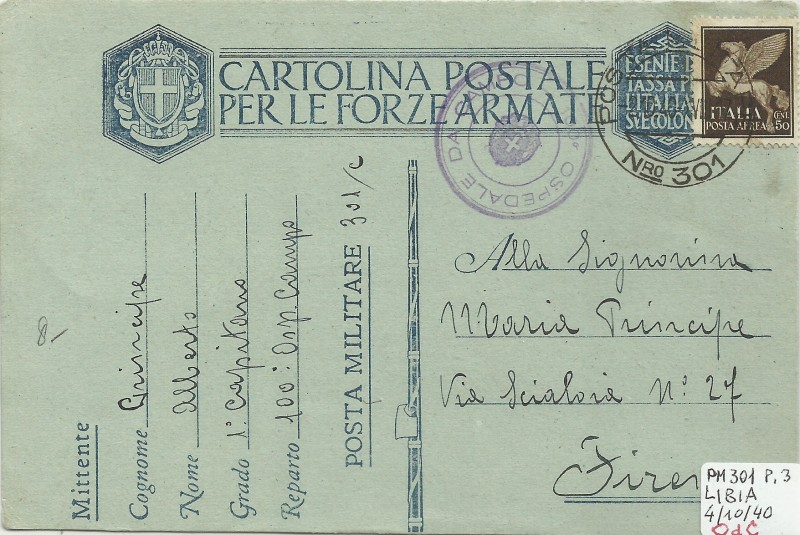 CARTOLINA POSTALE
PER LE FORZE ARMATE
ESENTE DA
TASSA PER
L'ITALIA
SVE COLON
ITALIA
POSTA AEREA
CENT. 50
POSTA
NRO 301
OSPEDALE DA CAMPO
Mittente
Cognome Principe
Nome Alberto
Grado 1° Capitano
Reparto 100° Osp. Campo
POSTA MILITARE 301/C
Alla Signorina
Maria Principe
Via Scialoia N° 27
Firen
8,-
PM301 P.3
LIBIA
4/10/40
OdC